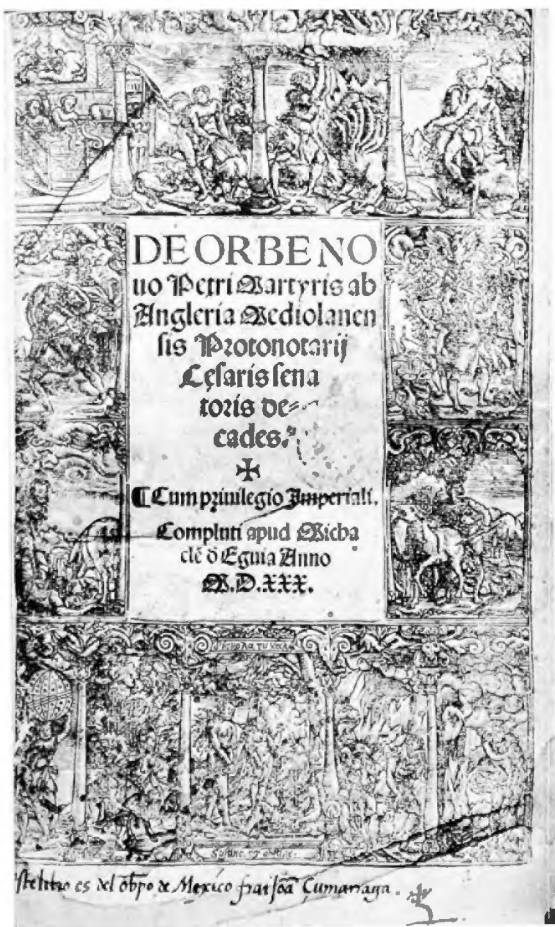 DE ORBE NO
uo Petri Martyris ab
Angleria Mediolanen
sis Protonotarij
Cęsaris sena
toris de⸗
cades.
✠
¶ Cum priuilegio Imperiali.
Compluti apud Micha
elē ď Eguia Anno
M.D.XXX.
ste libro es del obpo de Mexico frai Joā Çumarraga.